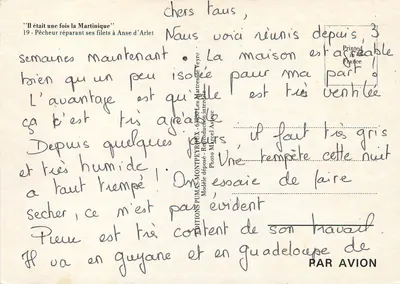 "Il était une fois la Martinique"
19 - Pêcheur réparant ses filets à Anse d'Arlet
Printed
France
chers tous,
Nous voici réunis depuis 3
semaines maintenant. La maison est agréable
bien qu'un peu isolée pour ma part !
L'avantage est qu'elle est très ventilée
ça c'est très agréable
Depuis quelques jours, il fait très gris
et très humide ! Une tempête cette nuit
a tout trempé ! On essaie de faire
secher, ce n'est pas évident
Pierre est très content de son travail.
Il va en guyane et en guadeloupe de
PAR AVION